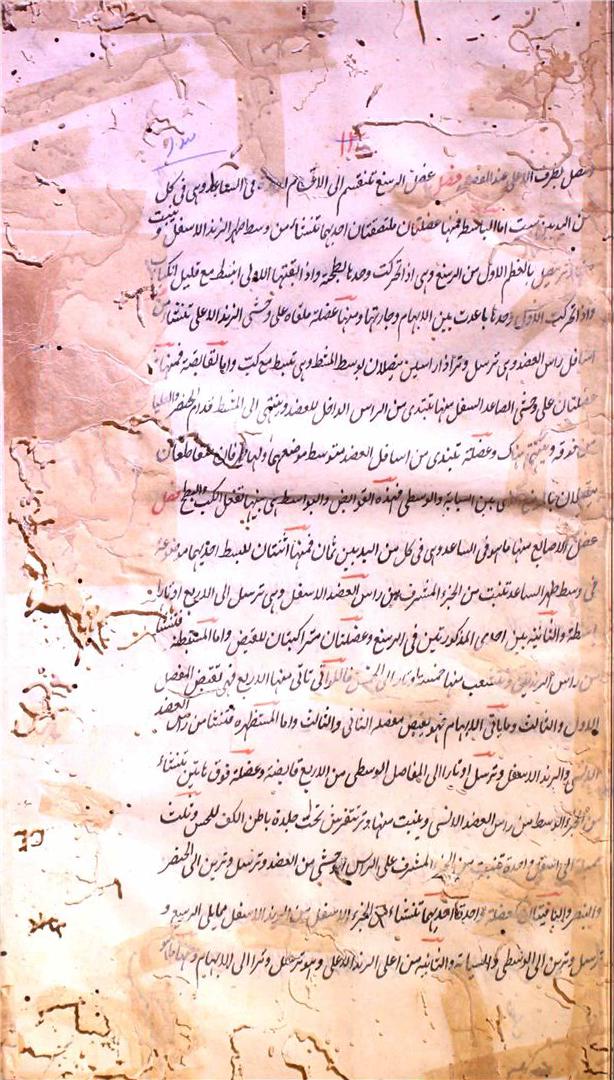 يتصل بطرف الاعلى عند المفصل فصل عضل الرسغ تنقسم الى الاقسام فى الساعد وهى فى كل
من اليدين ست اما الباسط فمنها عضلتان ملتصقتان احديهما تنشاء من وسط ظهر الزند الاسفل وينبت
يتصل بالعظم الاول من الرسغ وهى اذا تحركت وحدها بطحته واذا رافقتها الاولى انبسط مع قليل انكباب
واذا تحركت الاولى وحدها باعدت بين الابهام وجارتها ومنها عضلة ملقاه على وحشى الزند الاعلى تنشاء من
اسافل راس العضد وهى ترسل وترا ذا راسين يتصلان بوسط المشط وهى تبسط مع كب واما القابضة فمنها
عضلتان على وحشى الساعد السفلى منها تبتدى من الراس الداخل للعضد وينتهى الى المشط قدام الخنصر والعليا
من فوقه وينتهى هناك وعضلة تبتدى من اسافل العضد متوسط موضعهما ولها طرفان متقاطعان
يتصلان بين السبابة والوسطى فهذه القوابض والبواسط هى بعينها تفعل الكب والبطح فصل
عضل الاصابع منها ما هو فى الساعد وهى فى كل من اليدين ثمان فمنها اثنتان للبسط احديهما موضوعة
فى وسط ظهر الساعد تنبت من الجزء المشرف من راس العضد الاسفل وهى ترسل الى الاربع اوتارا
والثانية بين احدى المذكورتين فى الرسغ وعضلتان متراكبتان للقبض واما المتسفلة فتنشاء
من راس الزند وتتشعب منها خمسة اوتار الى الخمس فاللواتى تاتى منها الاربع فهى تقبض المفصل
الاول والثالث وما ياتى الابهام فهو يقبض مفصله الثانى والثالث واما المستظهره فتنشا من راس العضد
الانسى والزند الاسفل وترسل اوتارا الى المفاصل الوسطى من الاربع قابضة وعضلة فوق هاتين تنشاء
من الجزء الوسط من راس العضد الانسى وينبت منها وتر ينفرش تحت جلدة باطن الكف للحس وثلث
مميلة الى اسفل واحدة تنبت من الجزء المشرف على الراس الوحشى من العضد وترسل وترين الى الخنصر
والبنصر والباقيتان كعضلة واحدة احديهما تنشاء من الجزء الاسفل من الزند الاسفل مما يلى الرسغ و
ترسل وترين الى الوسطى والسبابة والثانيه من اعلى الزند الاعلى وهو ترسل وترا الى الابهام